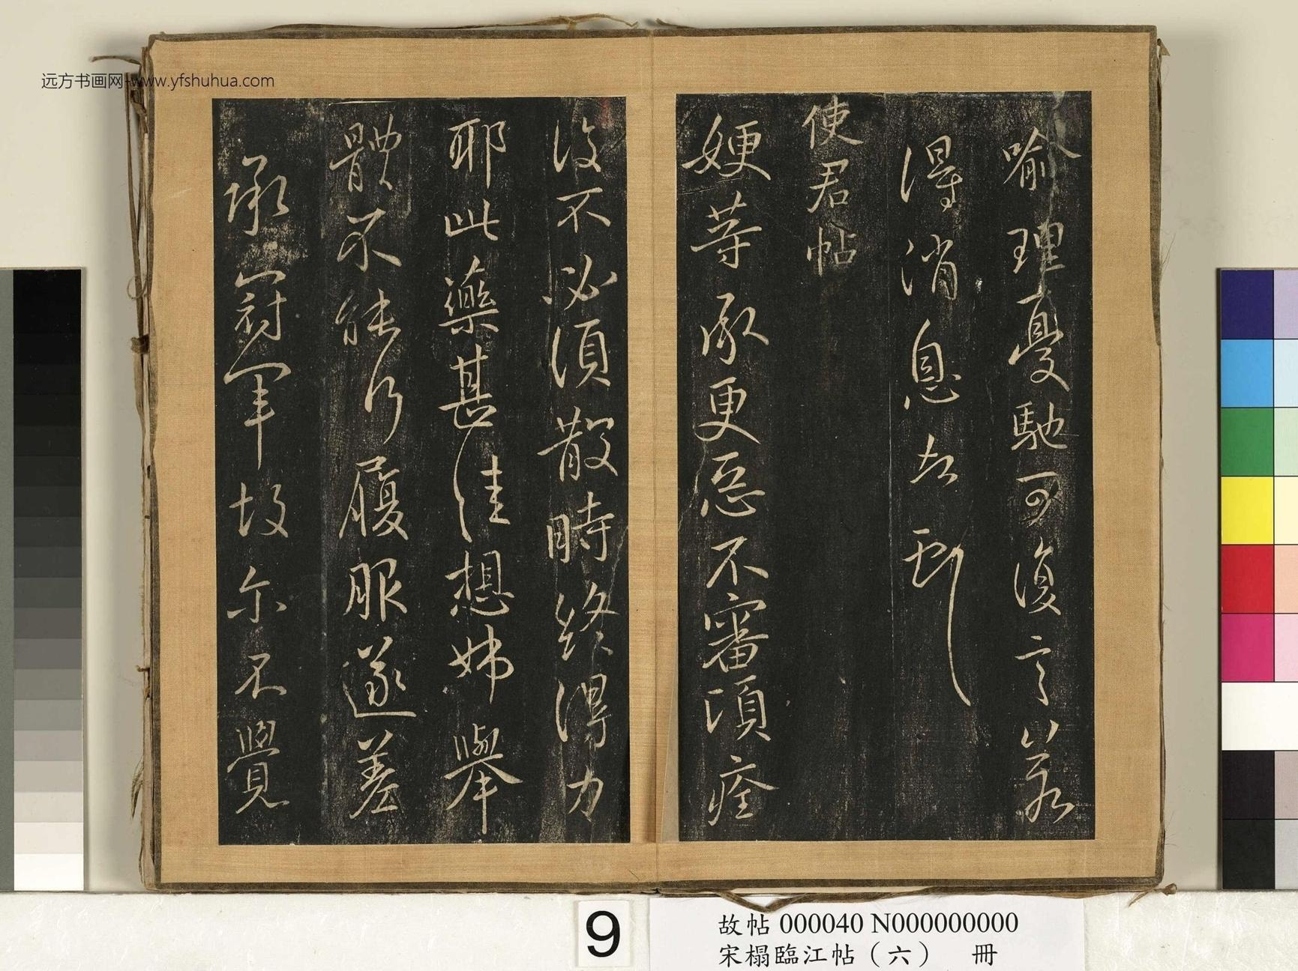 远方书画网-www.yfshuhua.com
喻理憂馳可復言若
得消息告
使君帖
娩等承更惡不審須痊
復不必須散時終得力
耶此藥甚佳想姊舉
體不能行履服遂差
承冠軍故尔不覺
9
故帖 000040 N000000000
宋榻臨江帖（六） 冊